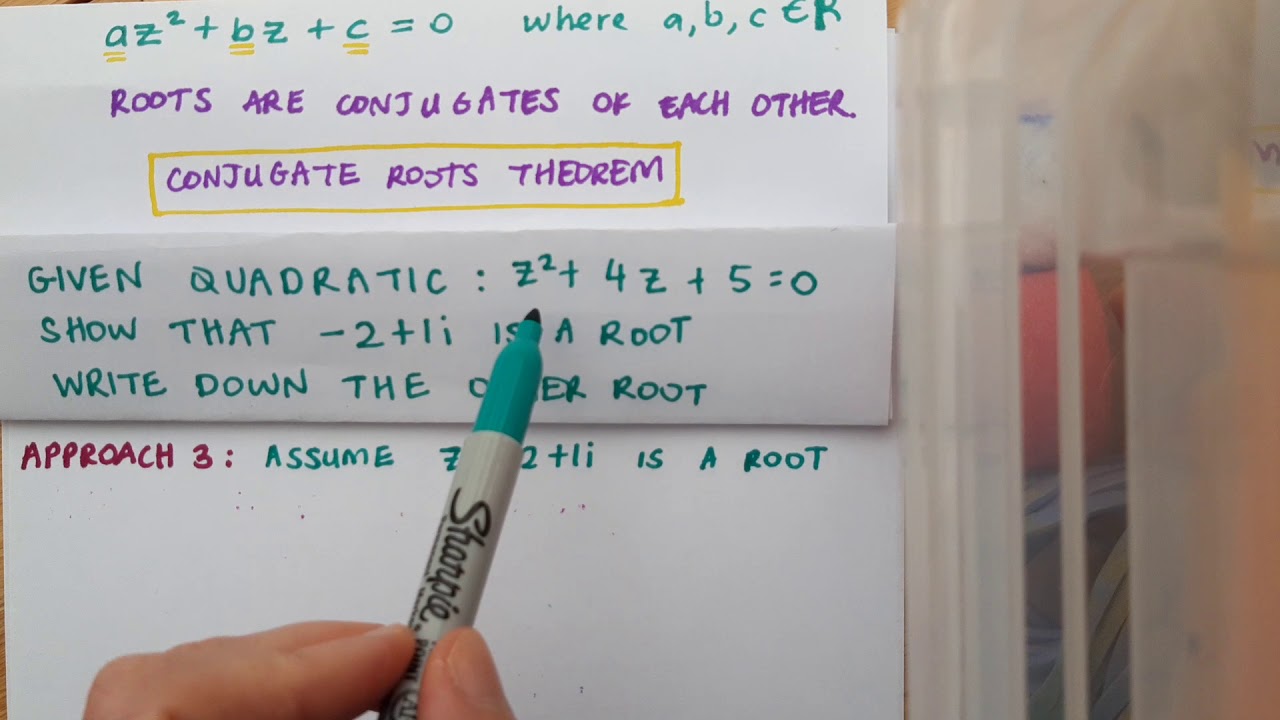 az² + bz + c = 0 where a, b, c ∈ R
ROOTS ARE CONJUGATES OF EACH OTHER.
CONJUGATE ROOTS THEOREM
GIVEN QUADRATIC : z² + 4z + 5 = 0
SHOW THAT -2+1i IS A ROOT
WRITE DOWN THE ROOT
APPROACH 3: ASSUME z 2+1i IS A ROOT
Sharpie